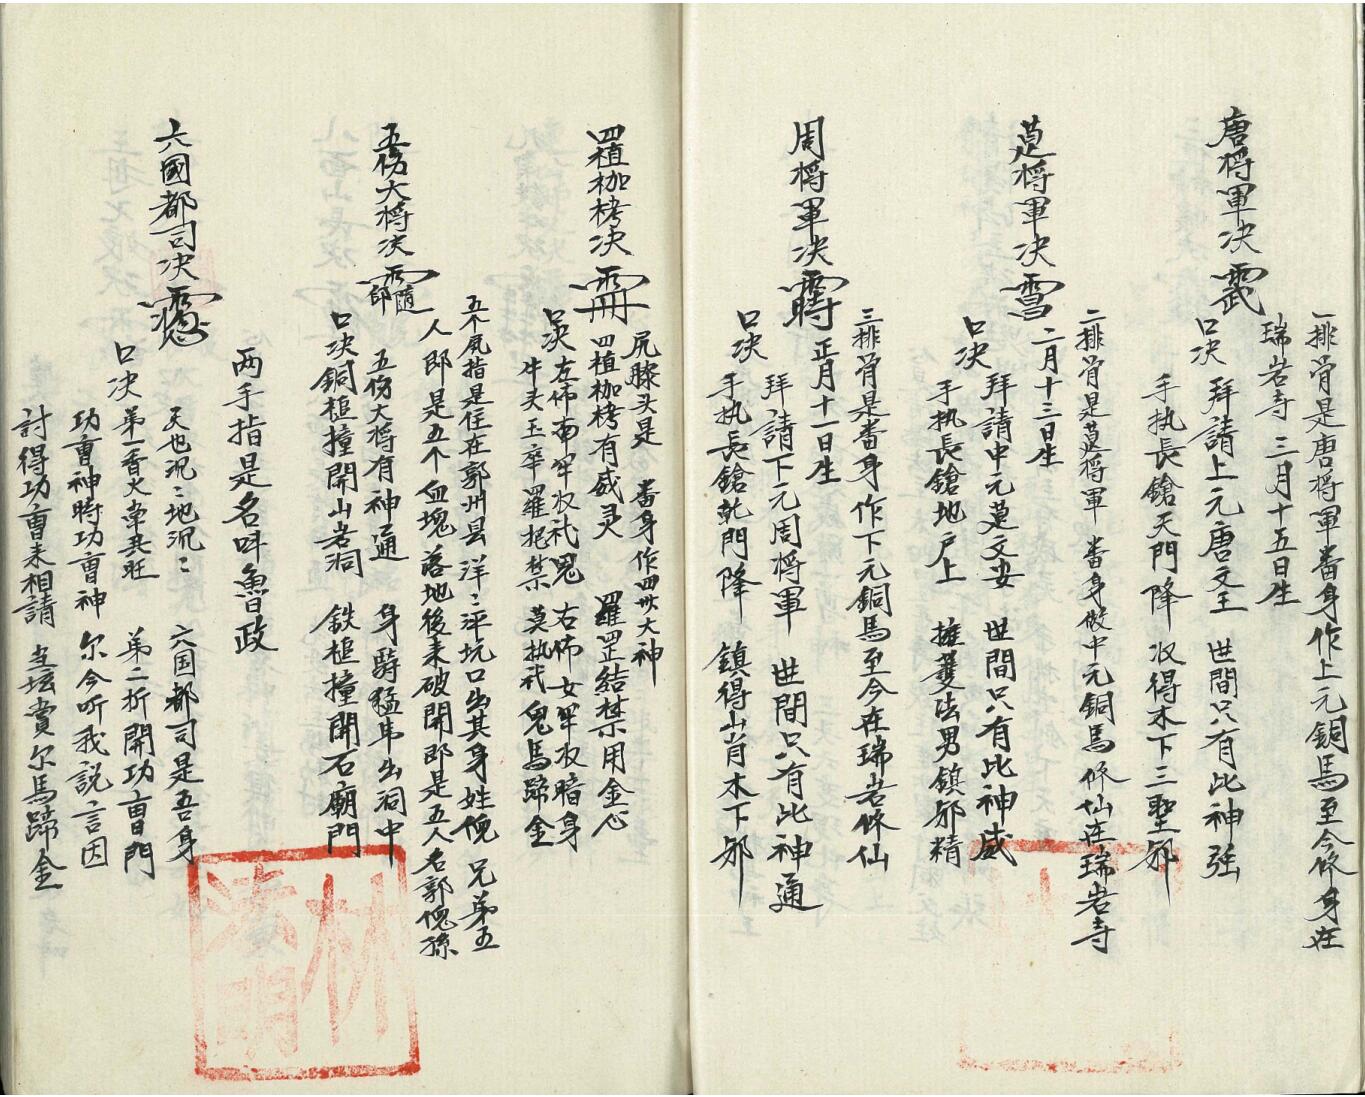 唐將軍决
一排骨是唐將軍畨身作上元銅馬至今修身在
瑞岩寺 三月十五日生
口决 拜請上元唐文主 世間只有此神强
手执長鎗天門降 収得木下三聖邪
将軍决
二排骨是 将軍 畨身做中元銅馬修仙在瑞岩寺
二月十三日生
口决 拜請中元 文安 世間只有此神威
手执長鎗地户上 擁護法男鎮邪精
周將軍决
三排骨是畨身作下元銅馬至今在瑞岩修仙
正月十一日生
口决 拜請下元周將軍 世間只有此神通
手执長鎗乾門降 鎮得山肖木下邪
四植枷栲决
尻膝头是 畨身作四州大神
四植枷栲有威灵 羅罡結禁用金心
口决 左佈南牢収祅鬼 右佈女牢収暗身
牛头玉卒羅把禁 莫执祅鬼馬蹄金
五伤大將决 随郎
五个尻指是住在郭州县洋洋坪坑口出其身姓倪 兄弟五
人 即是五个血塊落地後來破開即是五人名郭倪孫
五伤大將有神通 身騎猛馬出洞中
口决 銅槌撞開山岩洞 鉄槌撞開石廟門
两手指是名呌魯政
六國都司决
天也沉ミ地沉ミ 六国都司是吾身
口决 第一香火 共旺 第二折開功曹門
功曹神時功曹神 尔今听我説言因
討得功曹来相請 当坛賞尔馬蹄金
林
法明